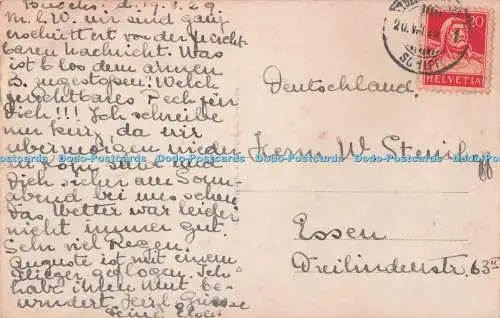 d. 19.8.29.
M. l. W. wir sind ganz
erschüttert von der furcht-
baren Nachricht. Was
ist blos dem armen
B. zugestossen! Welch
furchtbares Pech für
Dich!!! Ich schreibe
nur kurz, da wir
übermorgen wieder
in Köln sind und
Dich sicher am Sonn-
abend bei uns sehen
Das Wetter war leider
nicht immer gut.
Sehr viel Regen.
Auguste ist mit einem
Flieger geflogen. Ich
habe ihren Mut be-
wundert. Herzl. Grüsse
Deine
Deutschland.
Herrn W.
Essen
Dreilindenstr. 63
20
HELVETIA
Postcards Dodo-Postcards Dodo-Postcards Dodo-Postcards Dodo-Postcards